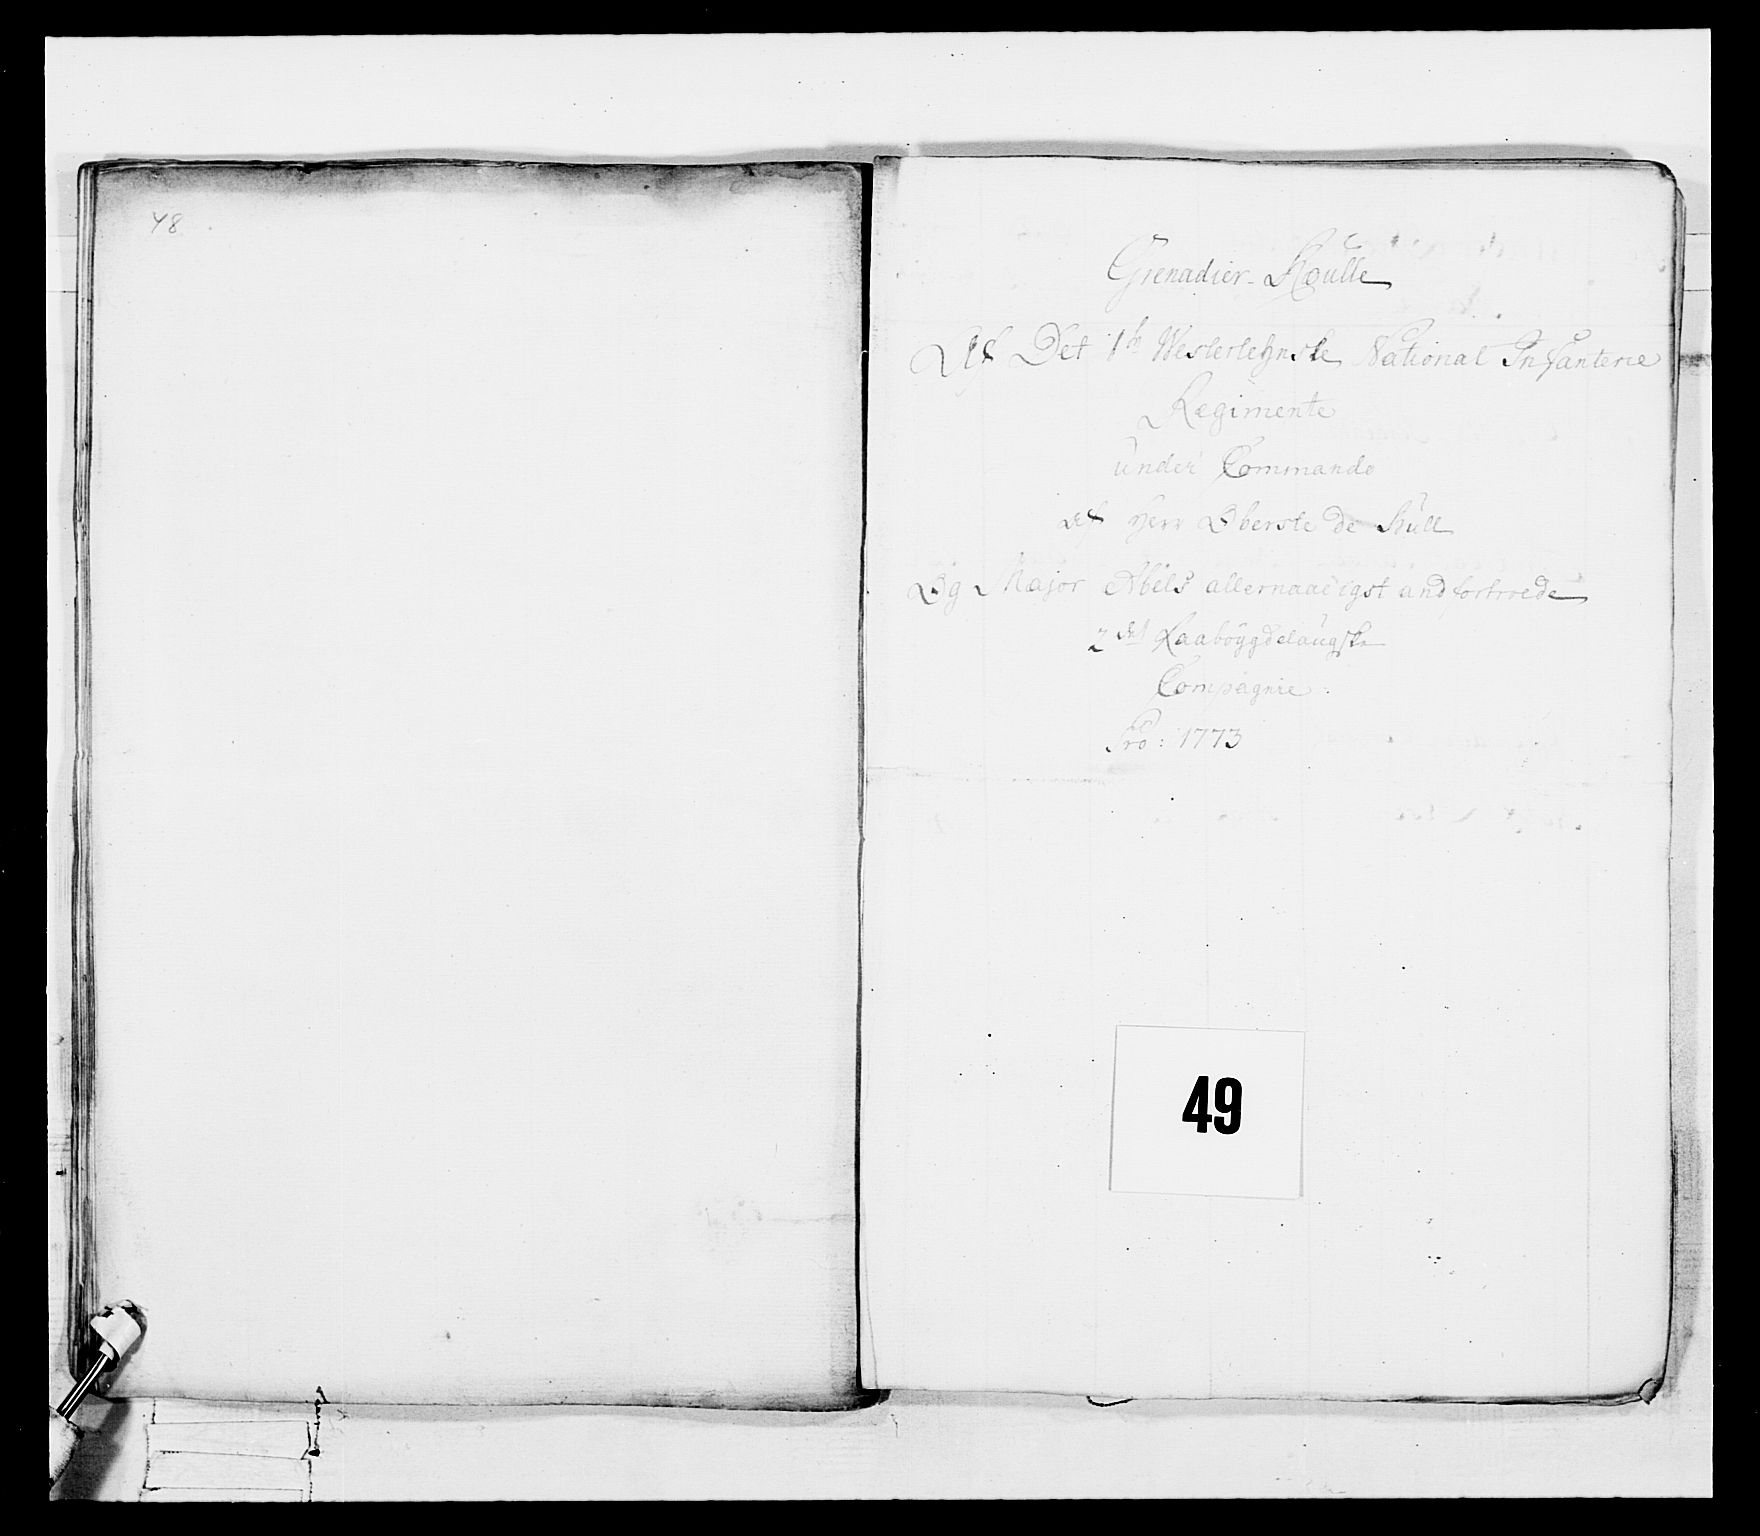 48
Grenadier-Roulle
Af Det 1te Westerlehnske National Infanterie
Regimente
under Commando
af Herr Oberste de Küll
Og Major Abels allernaadigst andfortroede
2det Raabøygdelaugske
Compagnie
Pro: 1773
49